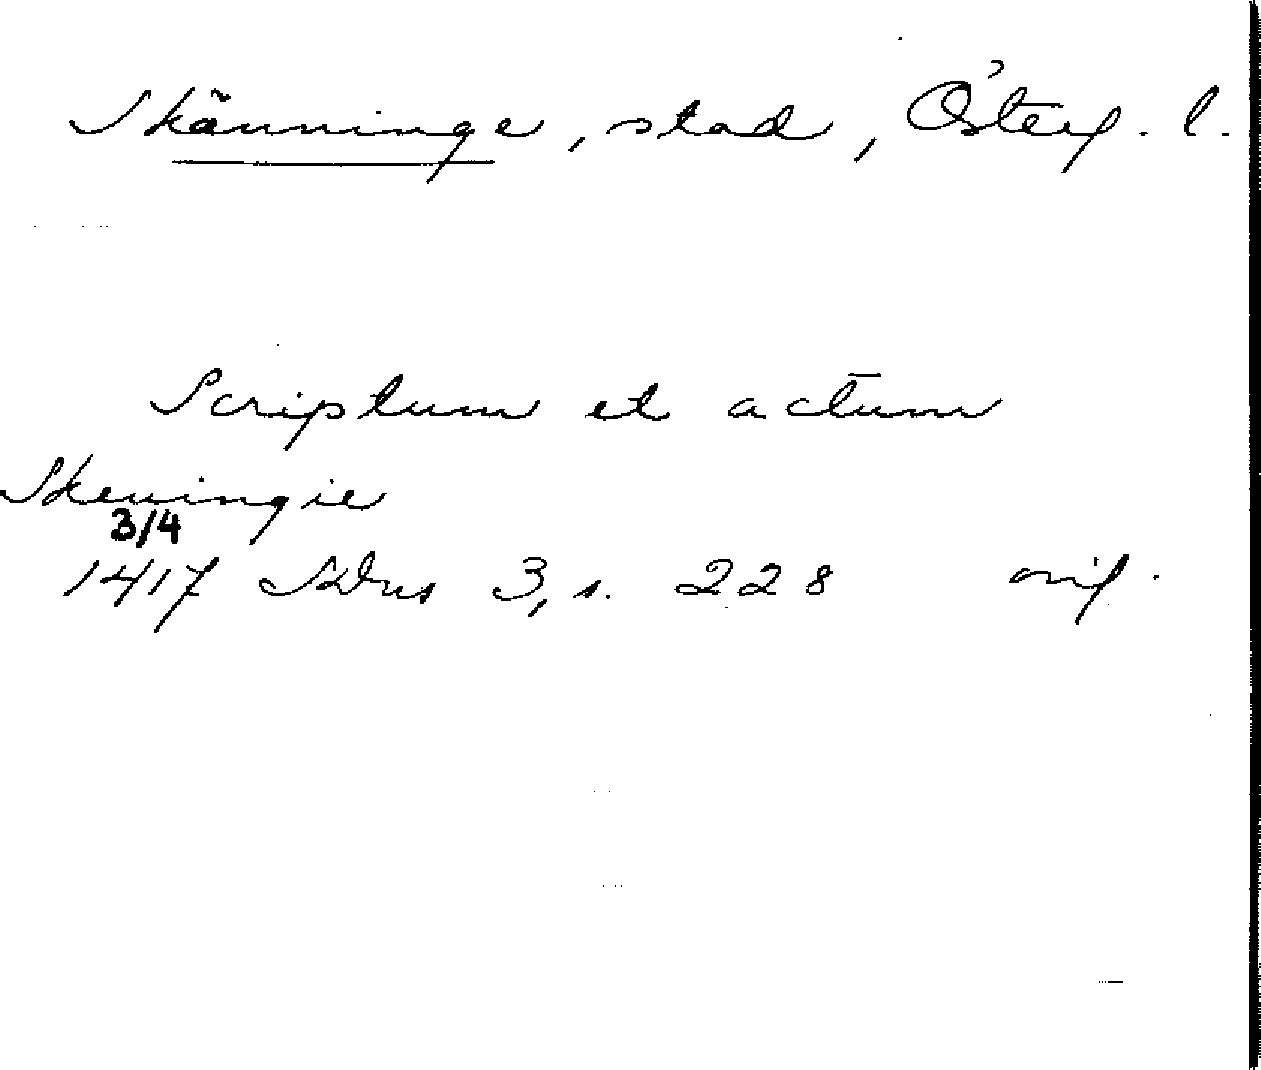 Skänninge, stad, Österg. l.
Scriptum et actum
Skeningie
3/4
1417 SDns 3, s. 228 orig.